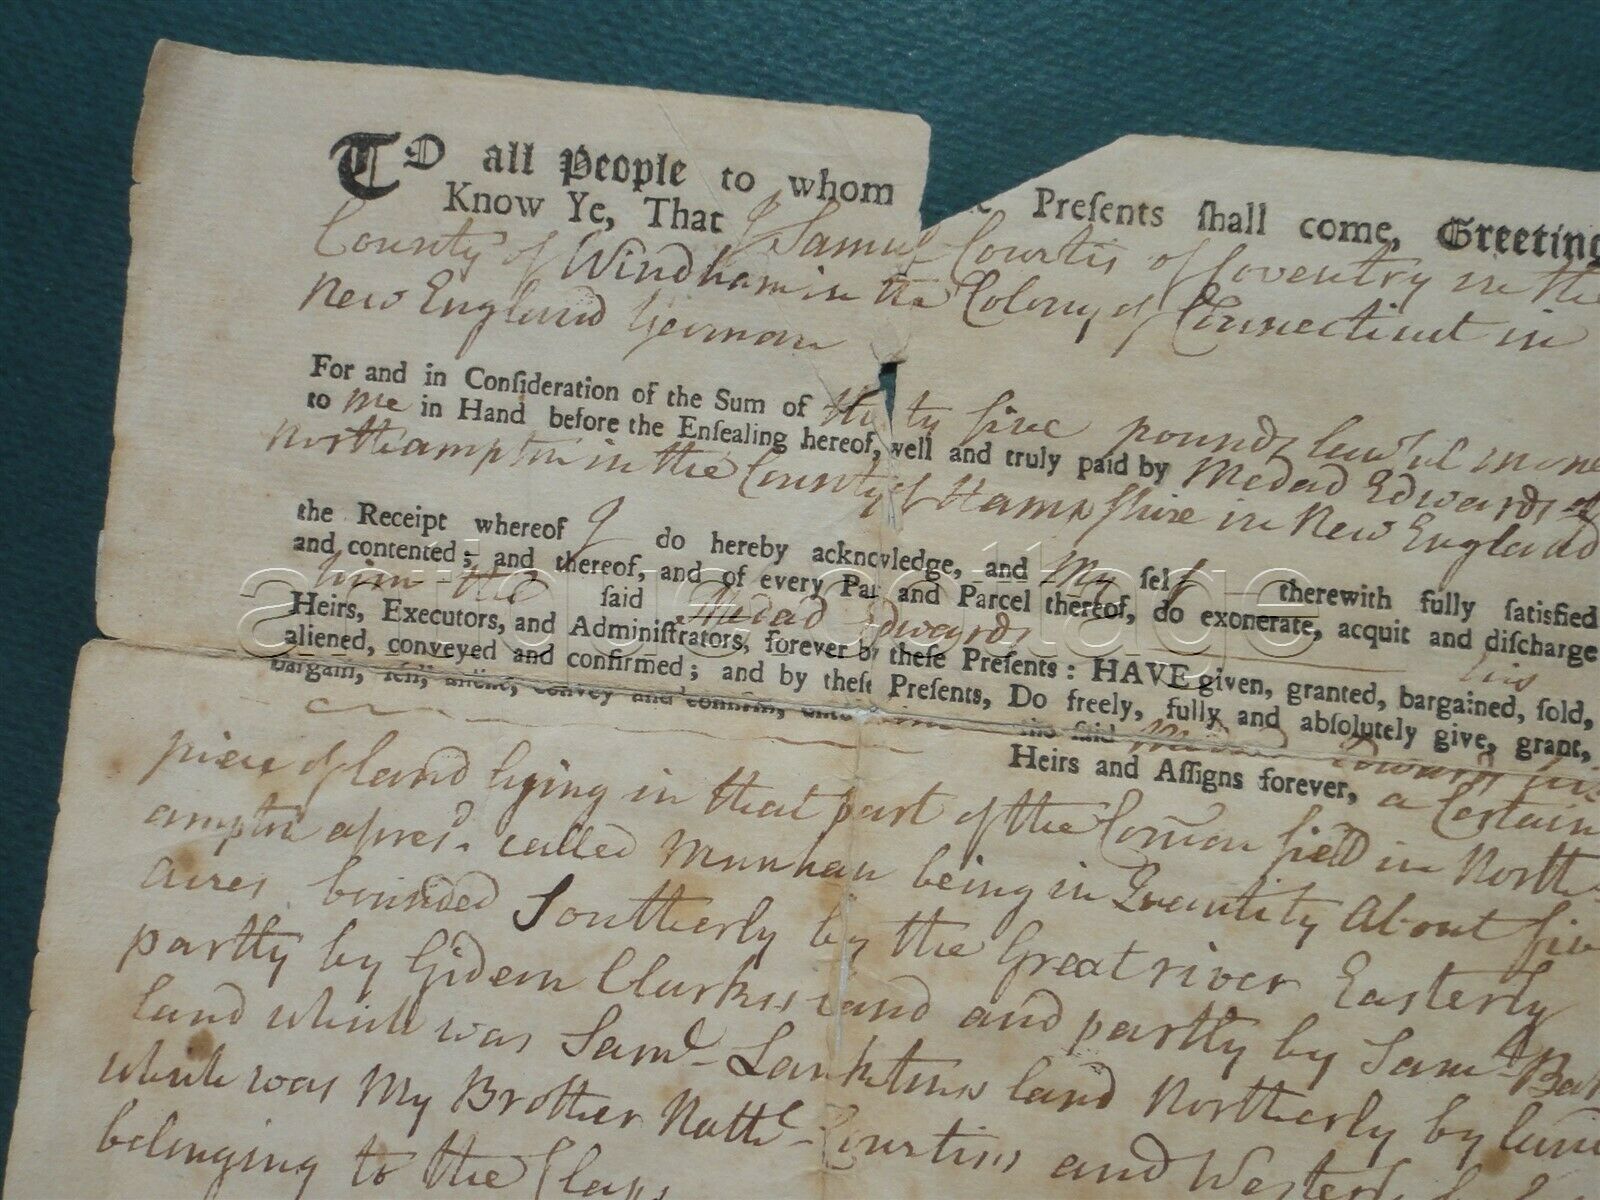 TO all People to whom Preſents ſhall come, Greeting
Know Ye, That I Samuel Courtis of Coventry in the
County of Windham in the Colony of Connecticut in
New England Yeoman
For and in Conſideration of the Sum of thirty five pounds lawful mone
to me in Hand before the Enſealing hereof, well and truly paid by Medad Edwards of
Northampton in the County of Hampſhire in New England
the Receipt whereof I do hereby acknowledge, and my ſelf therewith fully ſatisfied
and contented; and thereof, and of every Part and Parcel thereof, do exonerate, acquit and diſcharge
him the ſaid Medad Edwards his
Heirs, Executors, and Adminiſtrators, forever by theſe Preſents: HAVE given, granted, bargained, ſold,
aliened, conveyed and confirmed; and by theſe Preſents, Do freely, fully and abſolutely give, grant,
bargain, ſell, aliene, convey and confirm, unto him the ſaid Medad Edwards his
Heirs and Aſſigns forever, a Certain
piece of land lying in that part of the Comon field in North
ampton afores.d called Munhan being in Quantity About five
acres bounded Southerly by the Great river Easterly
partly by Gideon Clarks land and partly by Sam.ll
land which was Sam.ll Lanktons land Northerly by land
which was My Brother Nath.ll Courtiss and Westerly
belonging to the Claps
antique cottage